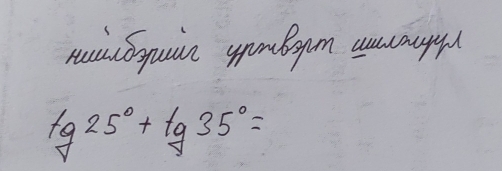 нийлбэрийг үржвэрт шилжүүл
tg 25° + tg 35° =